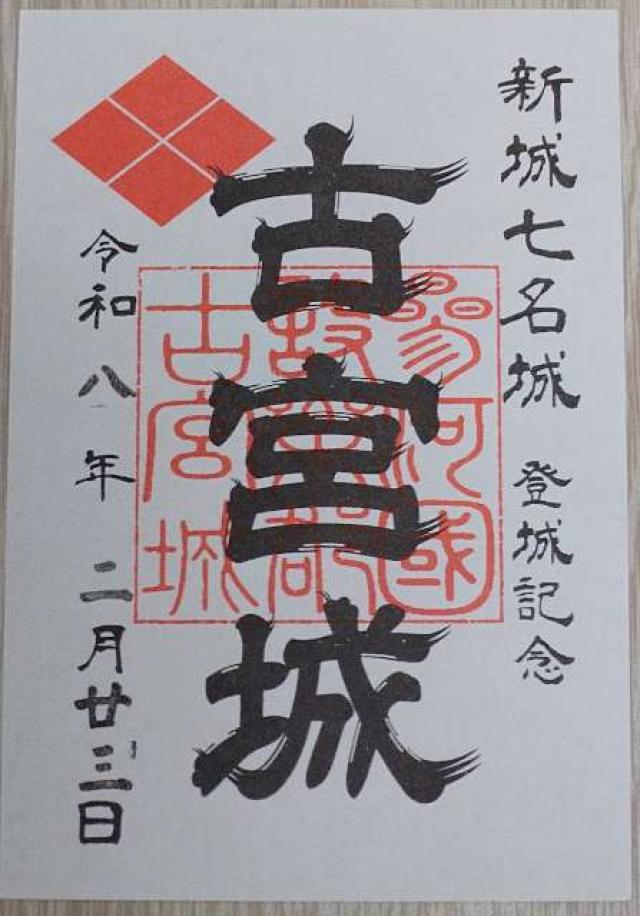 新城七名城 登城記念
古宮城
參河國
設樂郡
古宮城
令和八年 二月廿三日